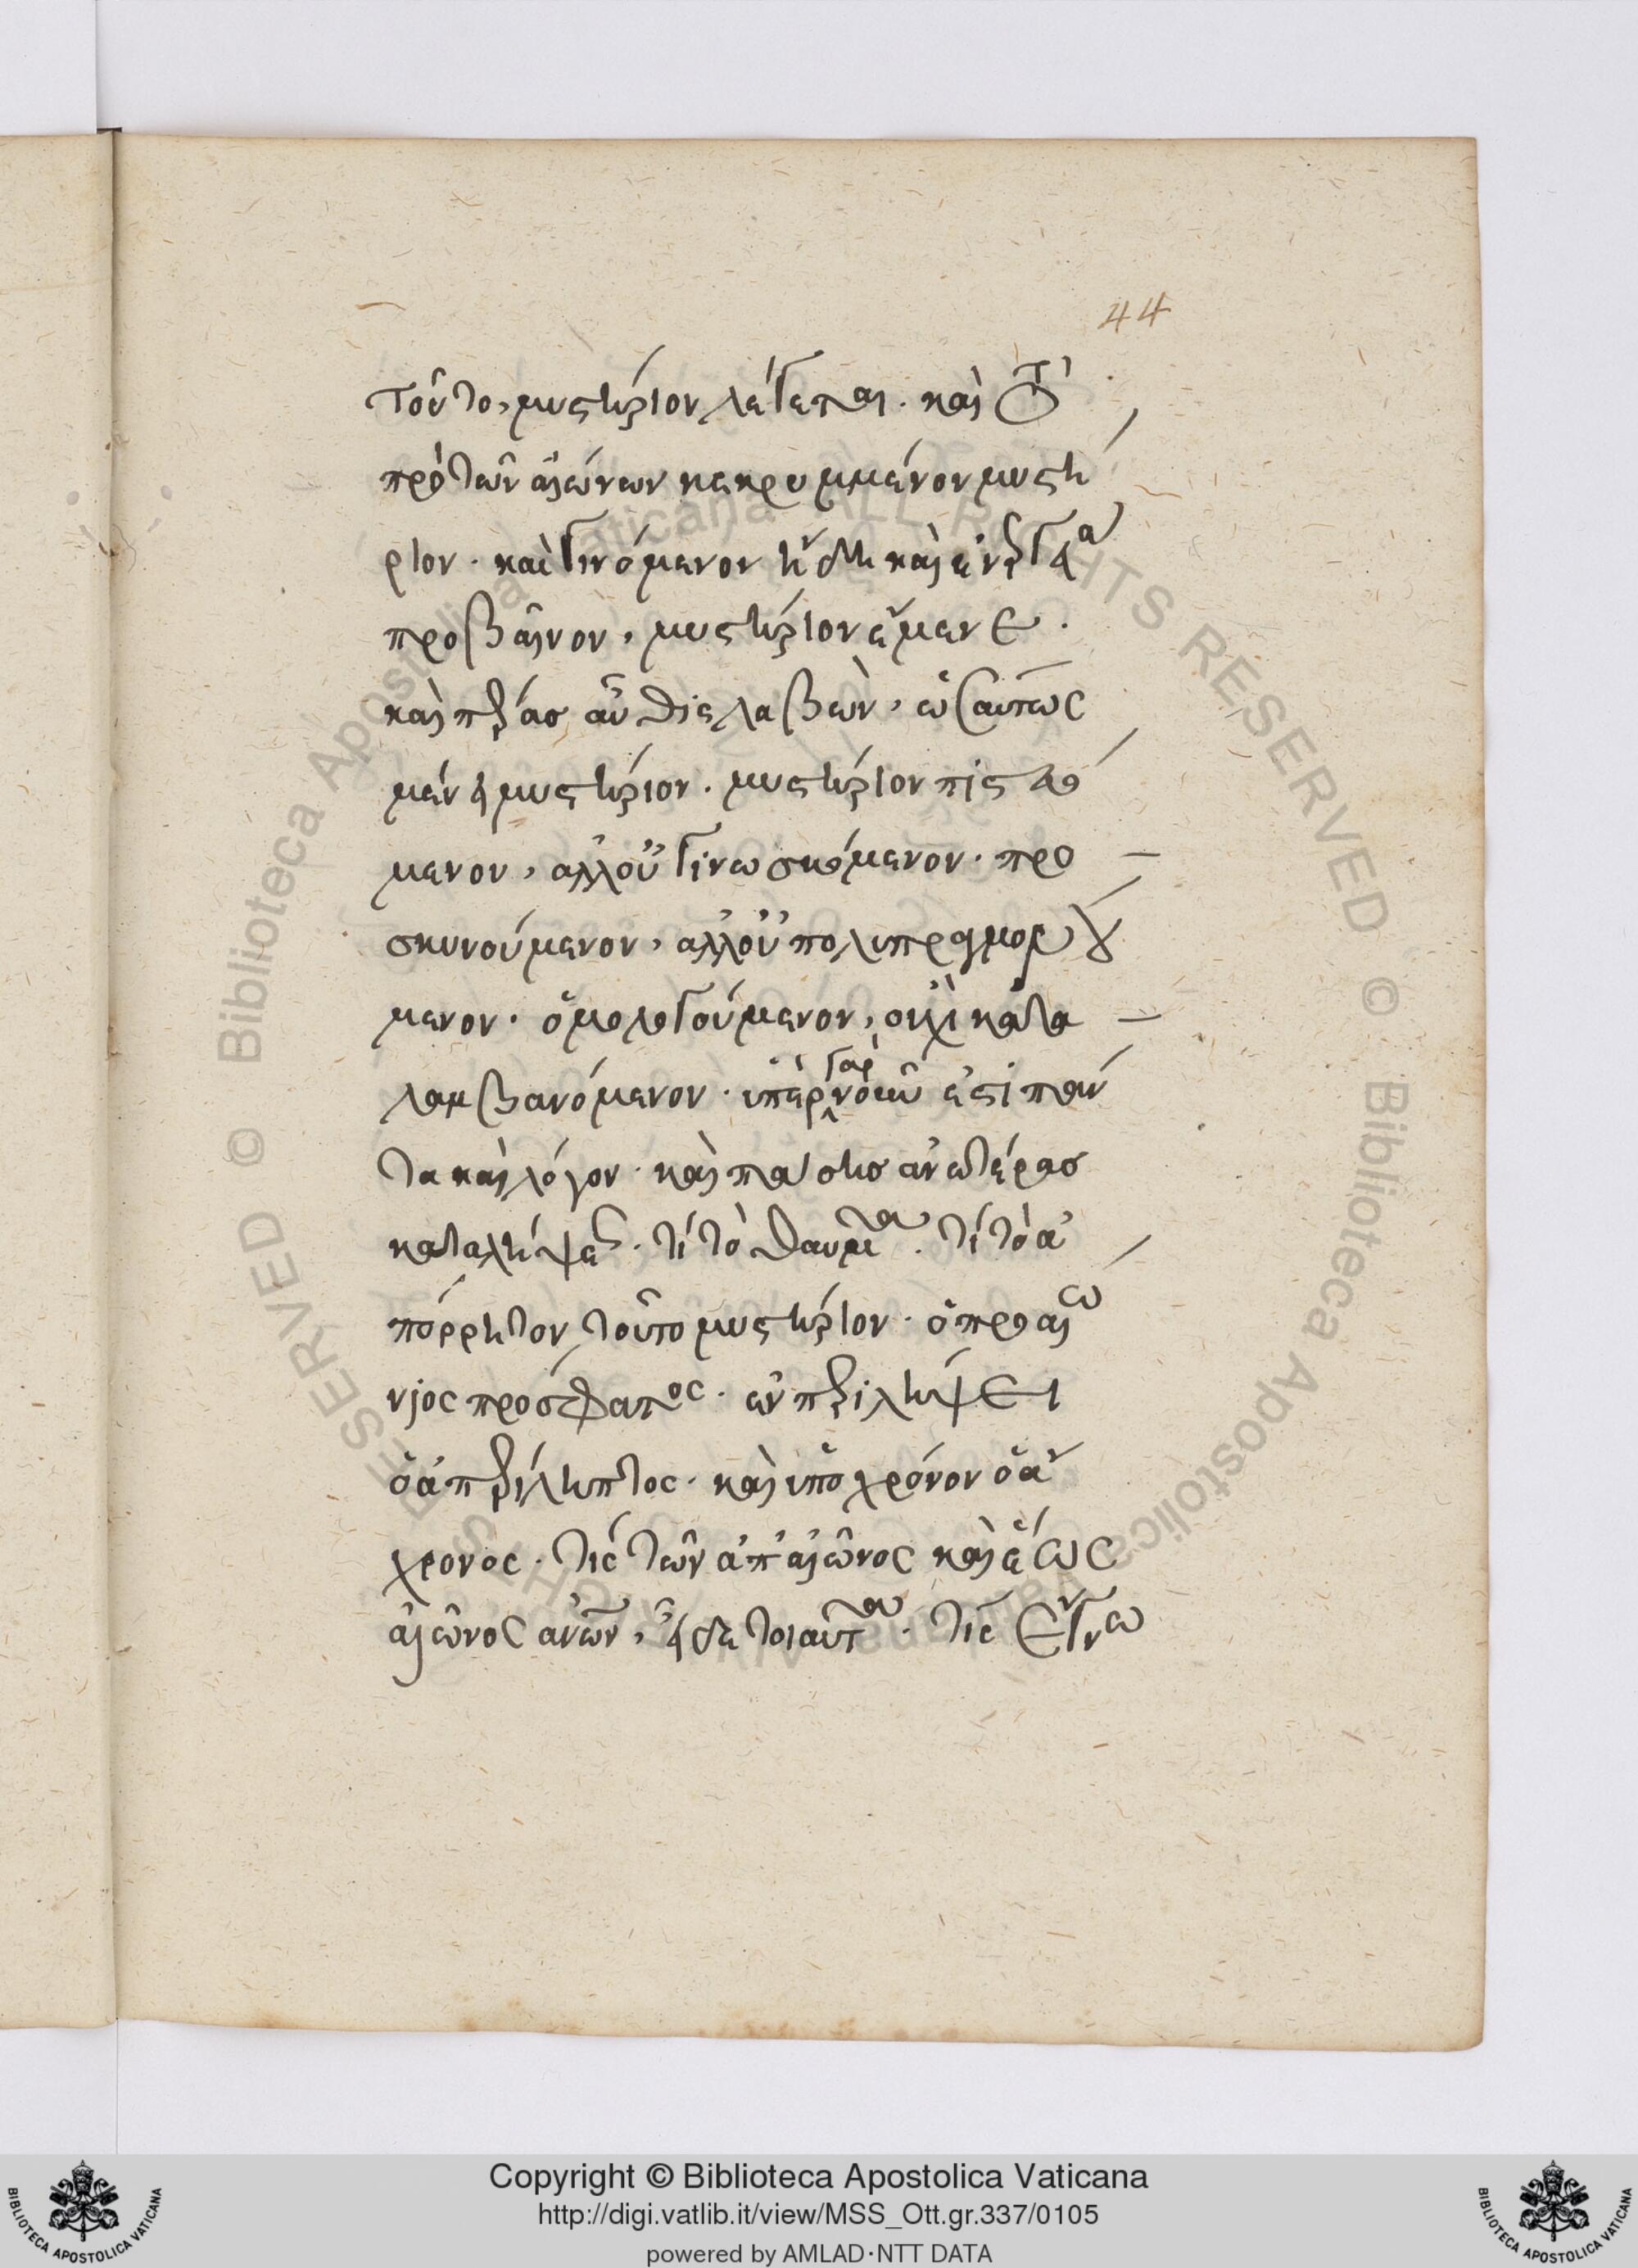 44
τοῦτο, μυστήριον λέγεται. καὶ τὸ
πρὸ τῶν αἰώνων κεκρυμμένον μυστή
ριον. καὶ γινόμενον ἤδη καὶ εἰς ἔργα
προβαῖνον, μυστήριον ἔμενε.
καὶ πέρας αὖθις λαβὼν, ὡσαύτως
μένει μυστήριον. μυστήριον πιστευό
μενον, ἀλλ' οὐ γινωσκόμενον. προ
σκυνούμενον, ἀλλ' οὐ πολυπραγμονού
μενον. ὁμολογούμενον, οὐχὶ κατα
λαμβανόμενον. ὑπὲρ γὰρ νοῦν ἐστὶ πάν
τα καὶ λόγον. καὶ πάσης ἀνωτέρας
καταλήψεως. τί τὸ θαῦμα. τί τὸ ἀ
πόρρητον τοῦτο μυστήριον. ὁ προαιώ
νιος πρόσφατος. ἐν περιλήψει
ὁ ἀπερίληπτος. καὶ ὑπὸ χρόνον ὁ ἄ
χρονος. τίς τῶν ἀπ' αἰῶνος καὶ ἕως
αἰῶνος ἀνων, εἶδε τοιαῦτα. τίς ἔγνω
Copyright © Biblioteca Apostolica Vaticana
http://digi.vatlib.it/view/MSS_Ott.gr.337/0105
powered by AMLAD·NTT DATA
BIBLIOTECA APOSTOLICA VATICANA
BIBLIOTECA APOSTOLICA VATICANA